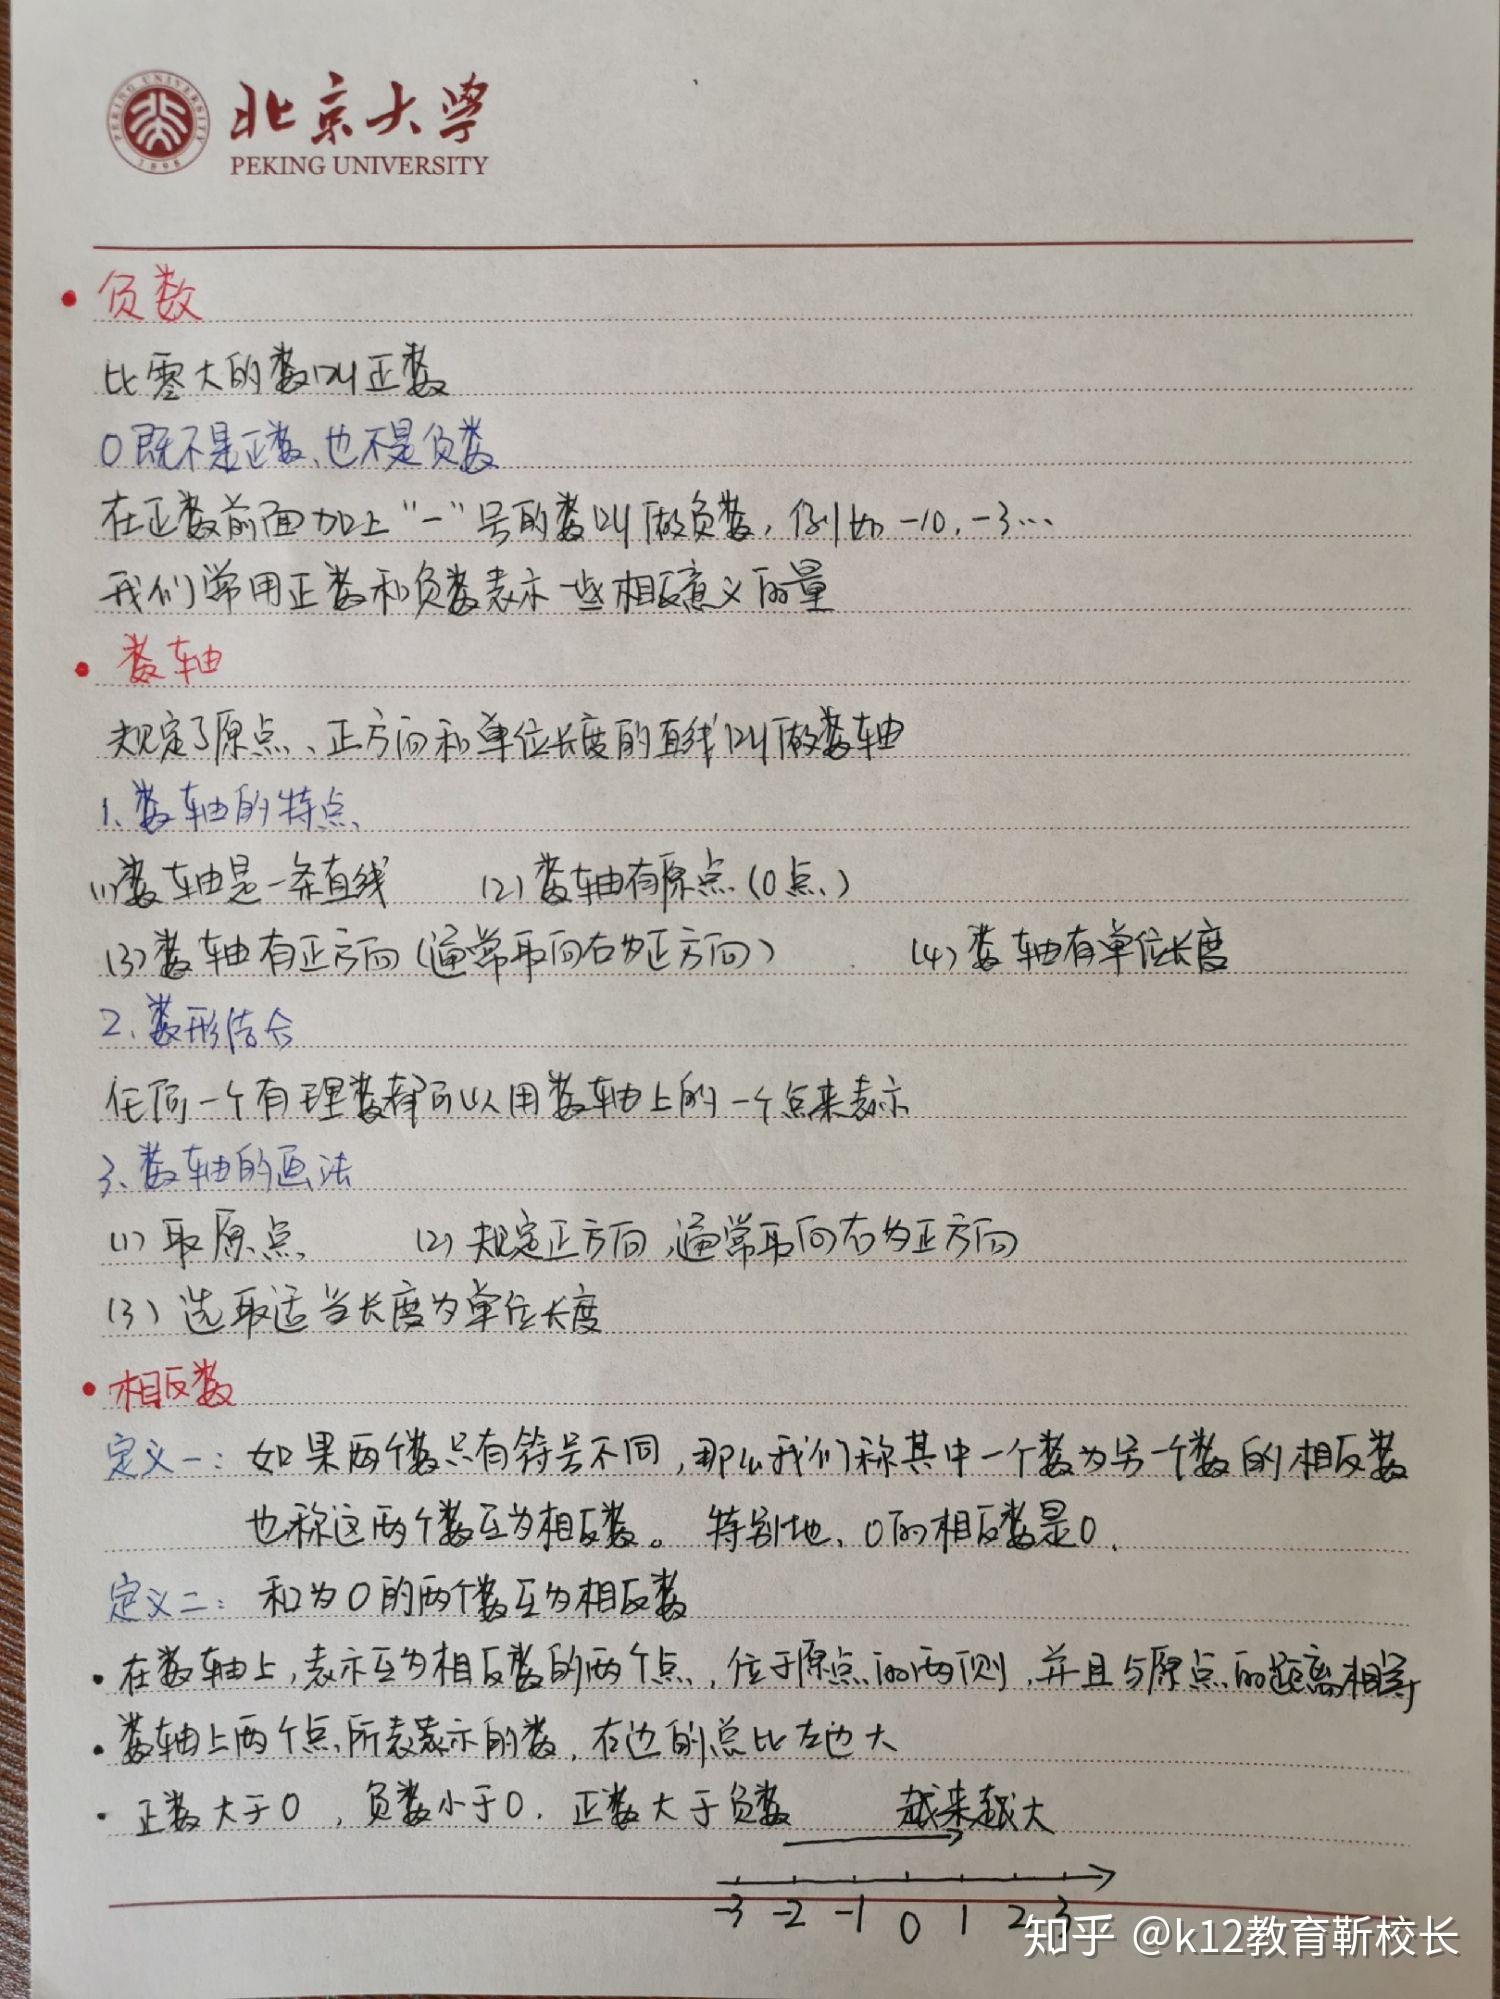 北京大学
PEKING UNIVERSITY
PEKING UNIVERSITY 1898
• 负数
比零大的数叫正数
0既不是正数、也不是负数
在正数前面加上“-”号的数叫做负数，例如 -10，-3…
我们常用正数和负数表示一些相反意义的量
• 数轴
规定了原点、正方向和单位长度的直线叫做数轴
1、数轴的特点
(1)数轴是一条直线 (2)数轴有原点(0点)
(3)数轴有正方向(通常取向右为正方向) (4)数轴有单位长度
2.数形结合
任何一个有理数都可以用数轴上的一个点来表示
3、数轴的画法
(1)取原点 (2)规定正方向，通常取向右为正方向
(3)选取适当长度为单位长度
• 相反数
定义一：如果两个数只有符号不同，那么我们称其中一个数为另一个数的相反数
也称这两个数互为相反数。特别地，0的相反数是0.
定义二：和为0的两个数互为相反数
• 在数轴上，表示互为相反数的两个点，位于原点的两侧，并且与原点的距离相等
• 数轴上两个点所表表示的数，右边的总比左边大
• 正数大于0，负数小于0.正数大于负数 越来越大
-3 -2 -1 0 1 2 3
知乎 @k12教育靳校长